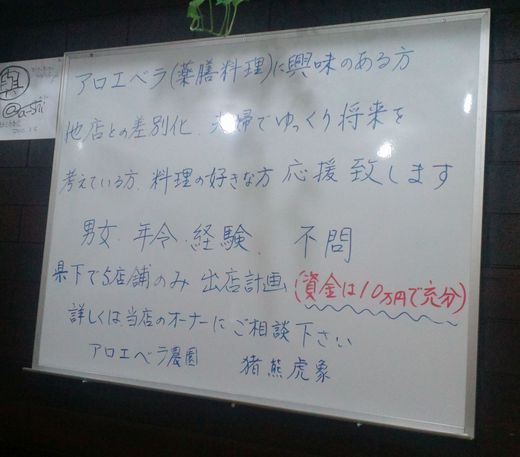 アロエベラ(薬膳料理)に興味のある方
他店との差別化、夫婦でゆっくり将来を
考えている方、料理の好きな方 応援致します
男女、年令、経験、不問
県下で5店舗のみ 出店計画 (資金は10万円で充分)
詳しくは当店のオーナーにご相談下さい
アロエベラ農園 猪熊虎象